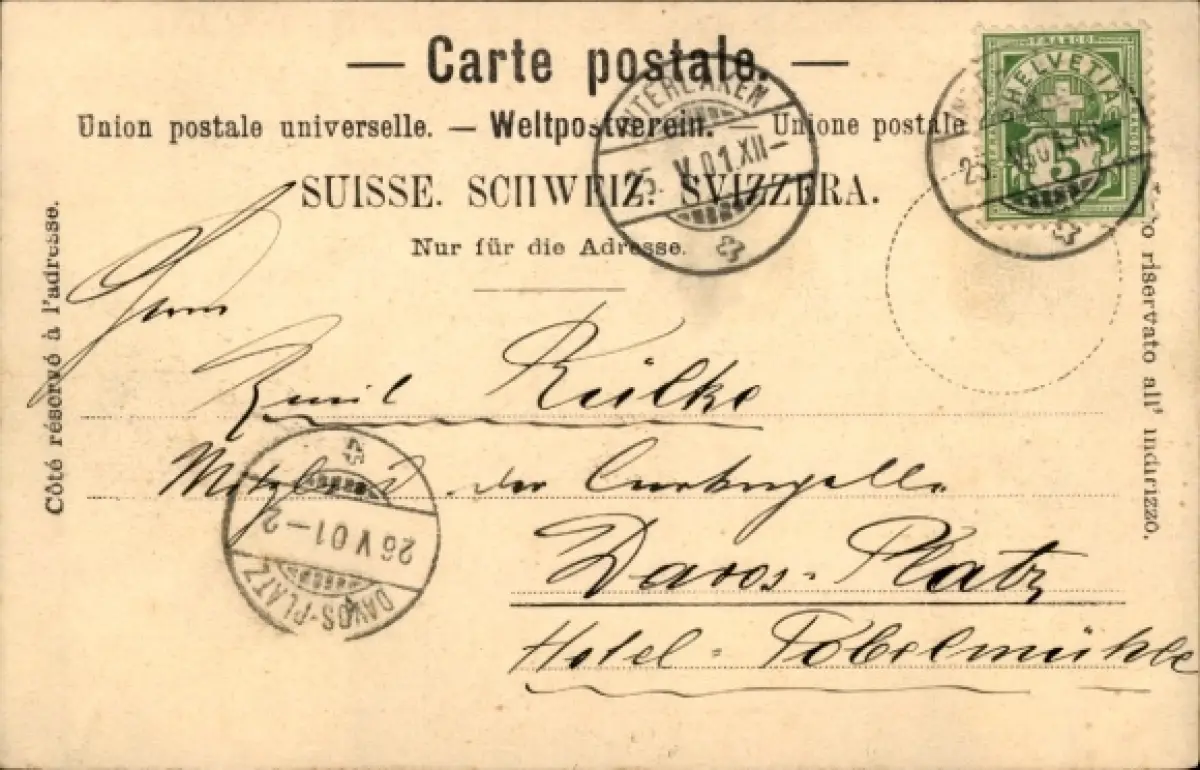 — Carte postale. —
Union postale universelle. — Weltpostverein. — Unione postale
SUISSE. SCHWEIZ. SVIZZERA.
Nur für die Adresse.
Côté réservé à l'adresse.
riservato all' indirizzo.
FRANCO
HELVETIA
5
INTERLAKEN
25. V. 01. XII–
25. V. 01. XII
Herrn
Emil Külke
Mitglied der Curkapelle
Davos-Platz
Hotel-Tobelmühle
26 V 01–2
DAVOS-PLATZ